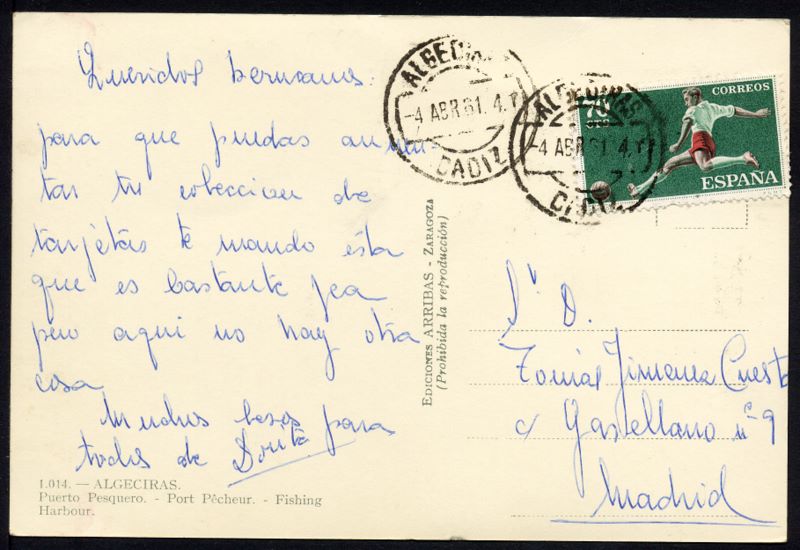 Queridos hermanos:
para que puedas aumen
tar tu coleccion de
tarjetas te mando ésta
que es bastante fea
pero aqui no hay otra
cosa
Muchos besos para
todos de Dorita
1.014. — ALGECIRAS.
Puerto Pesquero. - Port Pêcheur. - Fishing
Harbour.
EDICIONES ARRIBAS - ZARAGOZA
(Prohibida la reproducción)
ALGECIRAS
-4 ABR 61. 4.T
CADIZ
ALGECIRAS
-4 ABR 61. 4.T
CADIZ
70
CTS
CORREOS
ESPAÑA
Sr. D.
Tomas Jimenez Cuesta
c/ Gastellano nº 9
Madrid